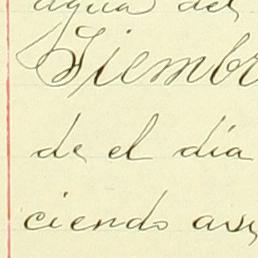 agua del
Siembr
de el día
ciendo asi